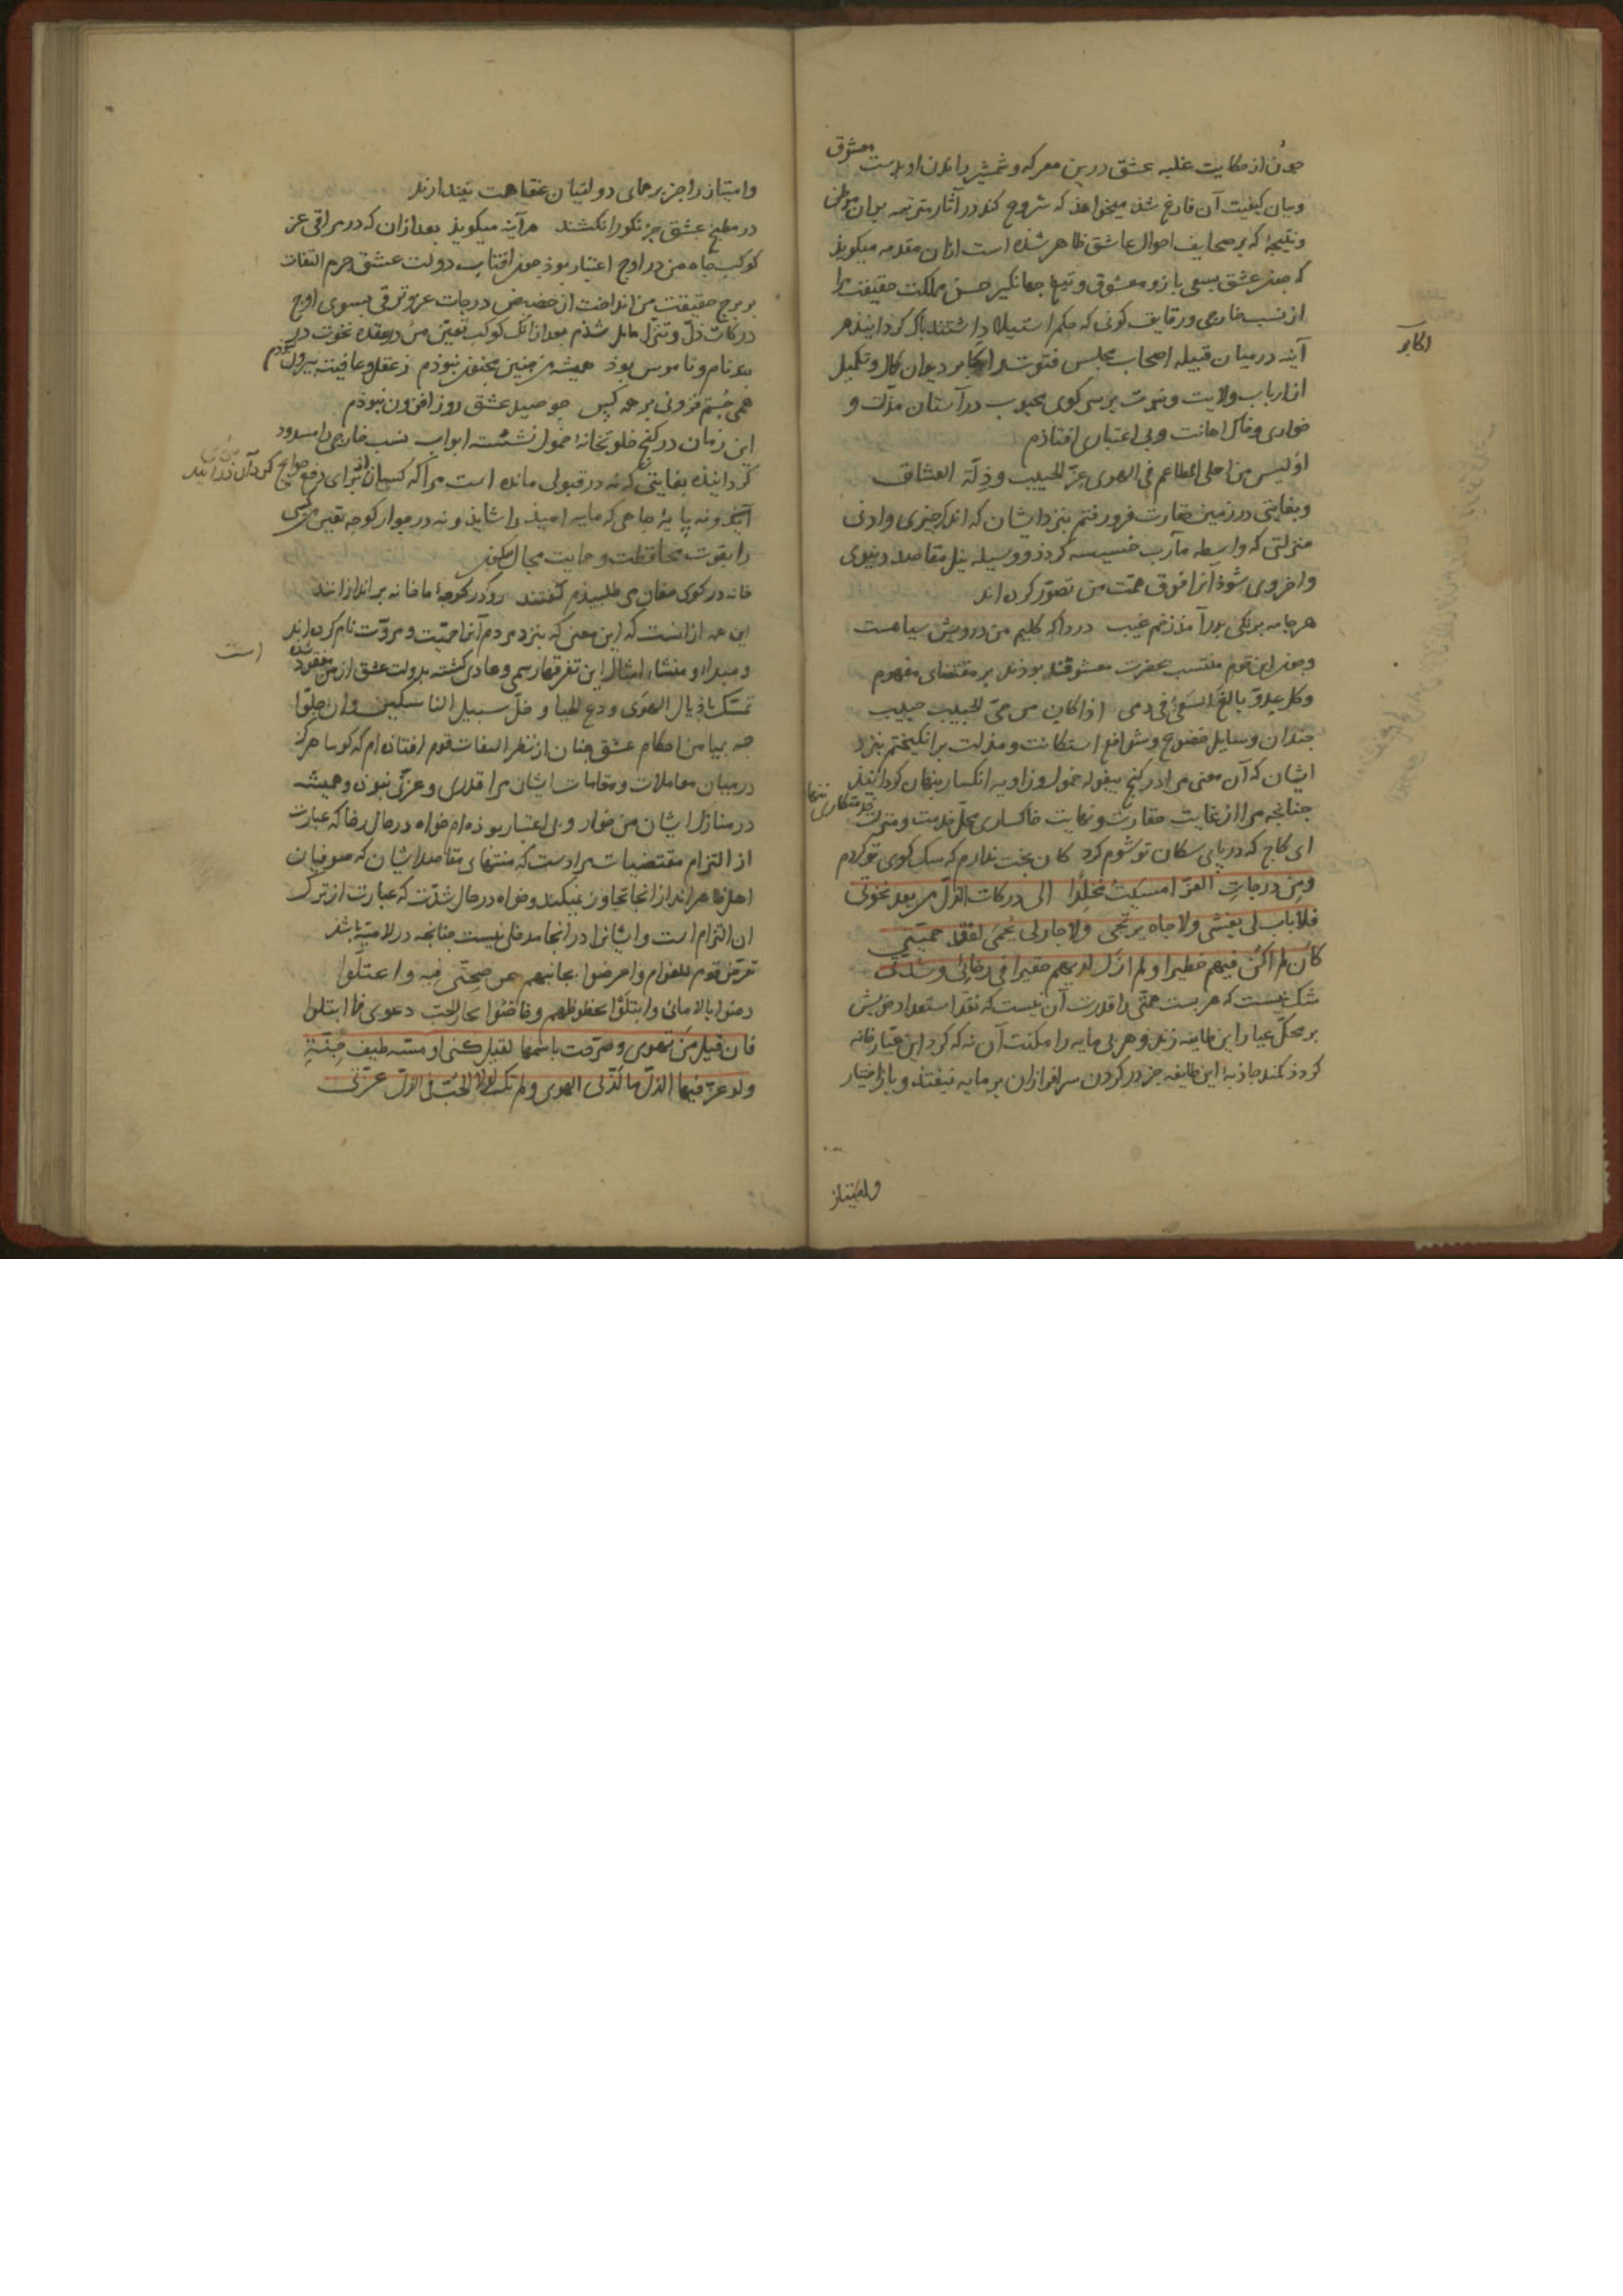 چون از حکایت غلبه عشق درین معرکه و شمشیر راندن او بدست معشوق
و بیان کیفیت آن فارغ شد میخواهد که شروع کند در آثار مترتبه بران موطن
و نتیجهٔ که بر صحایف احوال عاشق ظاهر شده است ازان مقدمه میکوید
که چون عشق بسعی بازو معشوق و تیغ جهانکیر حسن مملکت حقیقت مرا
از نسب خارجی و رقایق کونی که حکم استیلا داشتند پاک کردانید هر
آینه در میان قبیله اصحاب مجلس فتوت و اکابر دیوان کمال و تکمیل
اکابر
از ارباب ولایت و نبوت بر سر کوی محبوب در آستان مذلت و
خواری و خاک اهانت و بی اعتباری افتادم
اولیس من احلی المطاعم فی الهوی عزّ الحبیب و ذلّة العشاق
و بغایتی در زمین حقارت فرو رفتم بنزد ایشان که اندک چیزی و ادنی
منزلتی که واسطه مآرب خسیسه کردد و وسیله نیل مقاصد دنیوی
و اخروی شود آنرا فوق همت من تصور کرده اند
هر جامه برنکی بدر آمد ز خم غیب دردا که کلیم من درویش سیاهست
و چون این قوم منتسب بحضرت معشوقند بودند بر مقتضای مفهوم
وکل عدوّ بالغ السعی فی دمی اذا کان من حیّ الحبیب حبیب
چندان وسایل خضوع و شوافع استکانت و مذلت برانکیختم بنزد
ایشان که آن معنی مرا در کنج بیغوله خمول و زاویه انکسار پنهان کردانید
چنانچه مرا از غایت حقارت و نهایت خاکساری محل خدمت و منزلت خدمتکاری
ای کاج که در پای سکان تو شوم کرد کان بخت ندارم که سک کوی تو کردم
ومن درجات العزّ امسیت مخلدا الی درکات الذلّ من بعد نخوتی
فلا باب لی یغشی ولا جاه یرتجی ولا جار لی یحمی لفقد حمیتی
کان لم اکن فیهم خطیرا و لم ازل لدیهم حقیرا فی رخائی و شدتی
شک نیست که هر پست همتی را قدرت آن نیست که نقد استعداد خویش
بر محک عیار این طایفه زند و هر بی مایه را مکنت آن نه که کرد این
کردد کمند جاذبه این طایفه جز در کردن سرافرازان پر مایه نیفتد و باز اختیار
و امتیاز
و امتیاز را جز بر همای دولتیان عنقا همت نیندازند
در مطبخ عشق جز نکو را نکشند هر آینه میکوید بعد ازان که در مراقی عز
کوکب جاه من در اوج اعتبار بود چون افتاب دولت عشق جرم التفات
بر برج حقیقت من انداخت از حضیض درجات عز و ترقی بسوی اوج
درکات ذل و تنزل مایل شدم بعد ازانک کوکب تعین من در عقده نخوت در
بند نام و ناموس بود همیشه من چنین مجنون نبودم ز عقل و عافیت بیرون نبودم
همی جستم فزونی بر همه کس چو صید عشق روز افزون نبودم
این زمان در کنج خلوتخانه خمول نشسته ابواب نسب خارجی را مسدود
کردانیده بغایتی که نه در قبولی مانده است مرا که کسان از برای رفع حوایج کرد آن درآیند
آیند و نه پایهٔ جاهی که مایه امید را شاید و نه در جوار کوچه تعین من کسی
را بقوت محافظت و حمایت مجال سکون
خانه در کوی مغان می طلبیدم کفتند رو که در کوچهٔ ما خانه براندازانند
این همه ازانست که این معنی که بنزد مردم آنرا حمیت و مروت نام کرده اند
و مبدا و منشاء امثال این تفرقهاء رسمی و عادی کشته بدولت عشق از من مفقود شده
است
تمسّک باذیال الهوی ودع الحیا وخلّ سبیل الناسکین وان جلّوا
چه بیامن احکام عشق چنان از نظر التفات قوم افتاده ام که کویا هرکز
در میان معاملات و مقامات ایشان مرا قدری و عزتی نبوده و همیشه
در منازل ایشان من خوار و بی اعتبار بوده ام خواه در حال رخا که عبارت
از التزام مقتضیات مرادست که منتهای مقاصد ایشان که صوفیان
اهل ظاهراند از انجا تجاوز نمیکند و خواه در حال شدت که عبارت از ترک
ان التزام است و ایشانرا در انجا مدخلی نیست چنانچه در لامیّه باشد
تعرّض قوم للغرام واعرضوا بجانبهم عن صحتی فیه واعتلّوا
رضوا بالامانی وابتلوا بحظوظهم وخاضوا بحار الحبّ دعوی فما ابتلوا
فان قیل من تهوی وصرّحت باسمها لقیل کنی او مسّه طیف جنّة
ولو عزّ فیها الذلّ ما لذّ لی الهوی ولم تک لولا الحبّ فی الذلّ عزّتی